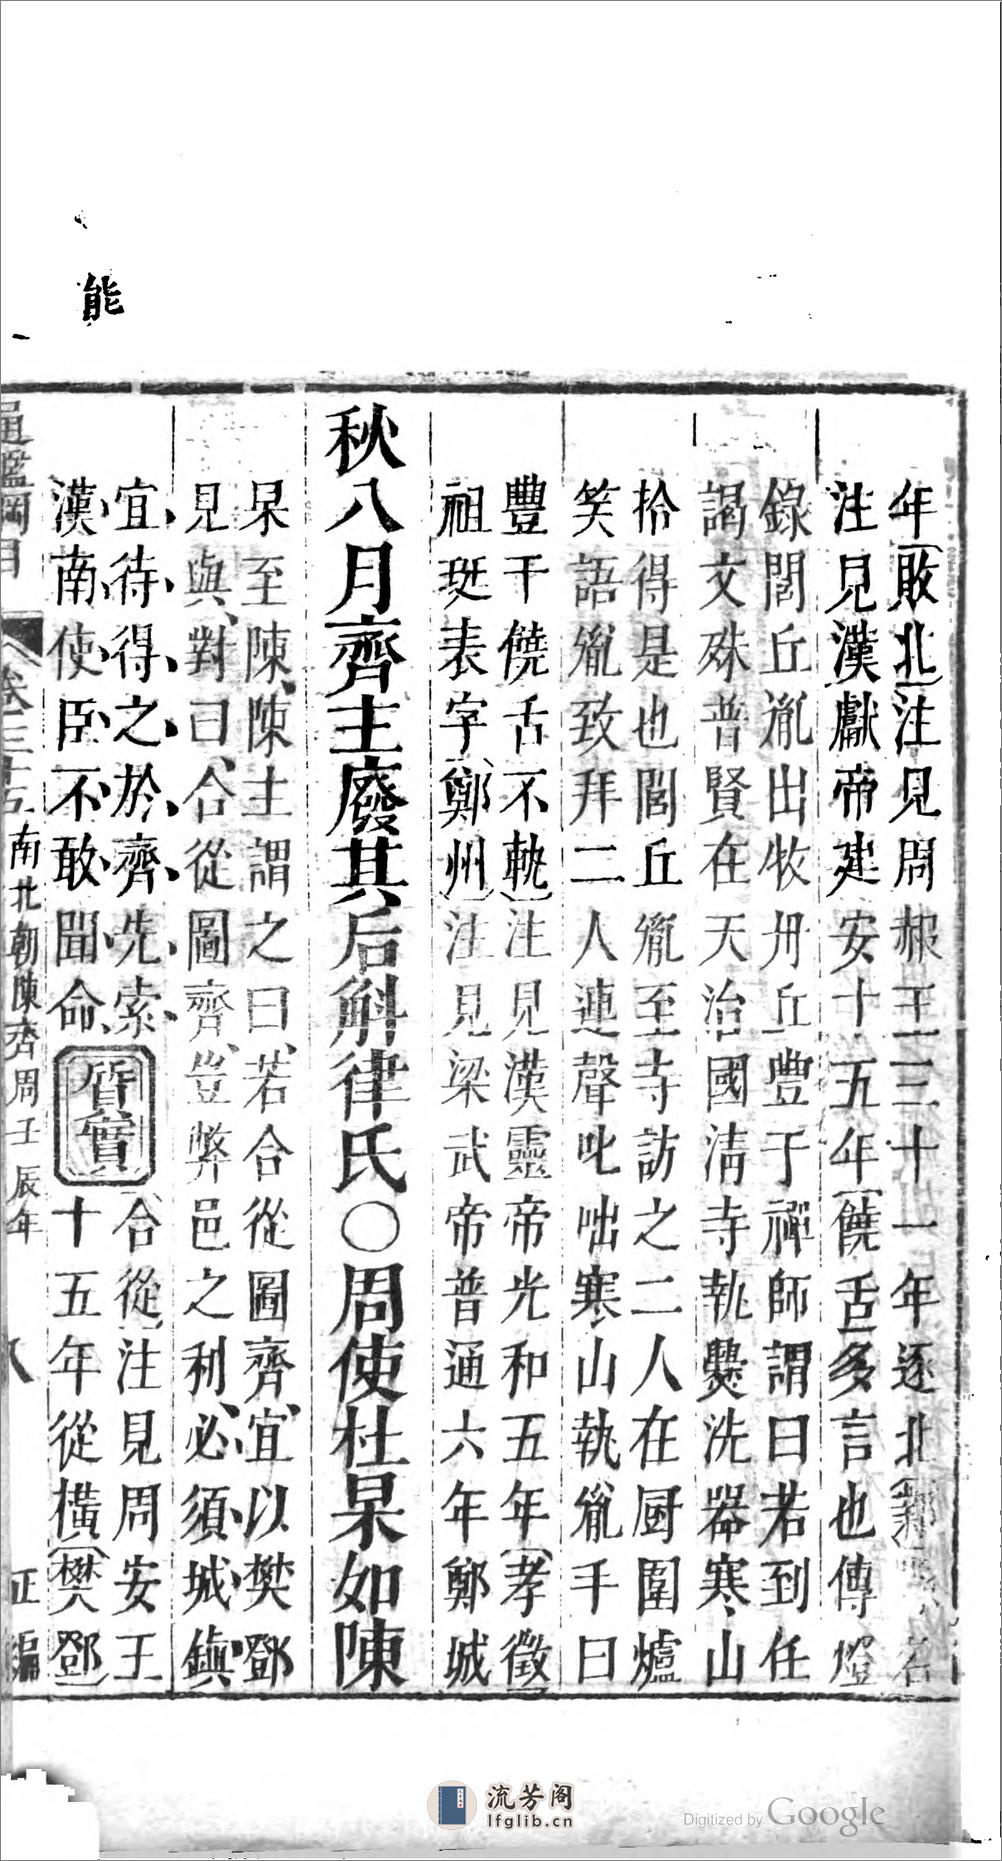 能
年敗北注見周赧王三十一年逐北
注見漢獻帝建安十五年饒舌多言也傳燈
錄閭丘胤出牧丹丘豐干禪師謂曰若到任
謁文殊普賢在天治國淸寺執爨洗器寒山
拾得是也閭丘胤至寺訪之二人在厨圍爐
笑語胤致拜二人連聲叱咄寒山執胤手曰
豐干饒舌不軌注見漢靈帝光和五年孝徵
祖珽表字鄭州注見梁武帝普通六年鄭城
秋八月齊主廢其后斛律氏○周使杜杲如陳
杲至陳陳主謂之曰若合從圖齊宜以樊鄧
見與對曰合從圖齊豈弊邑之利必須城鎮
宜待得之於齊先索
漢南使臣不敢聞命
質實
合從注見周安王
十五年從橫樊鄧
通鑑綱目
卷三十五
南北朝陳齊周壬辰年
八
正編
流芳阁
lfglib.cn
Digitized by Google